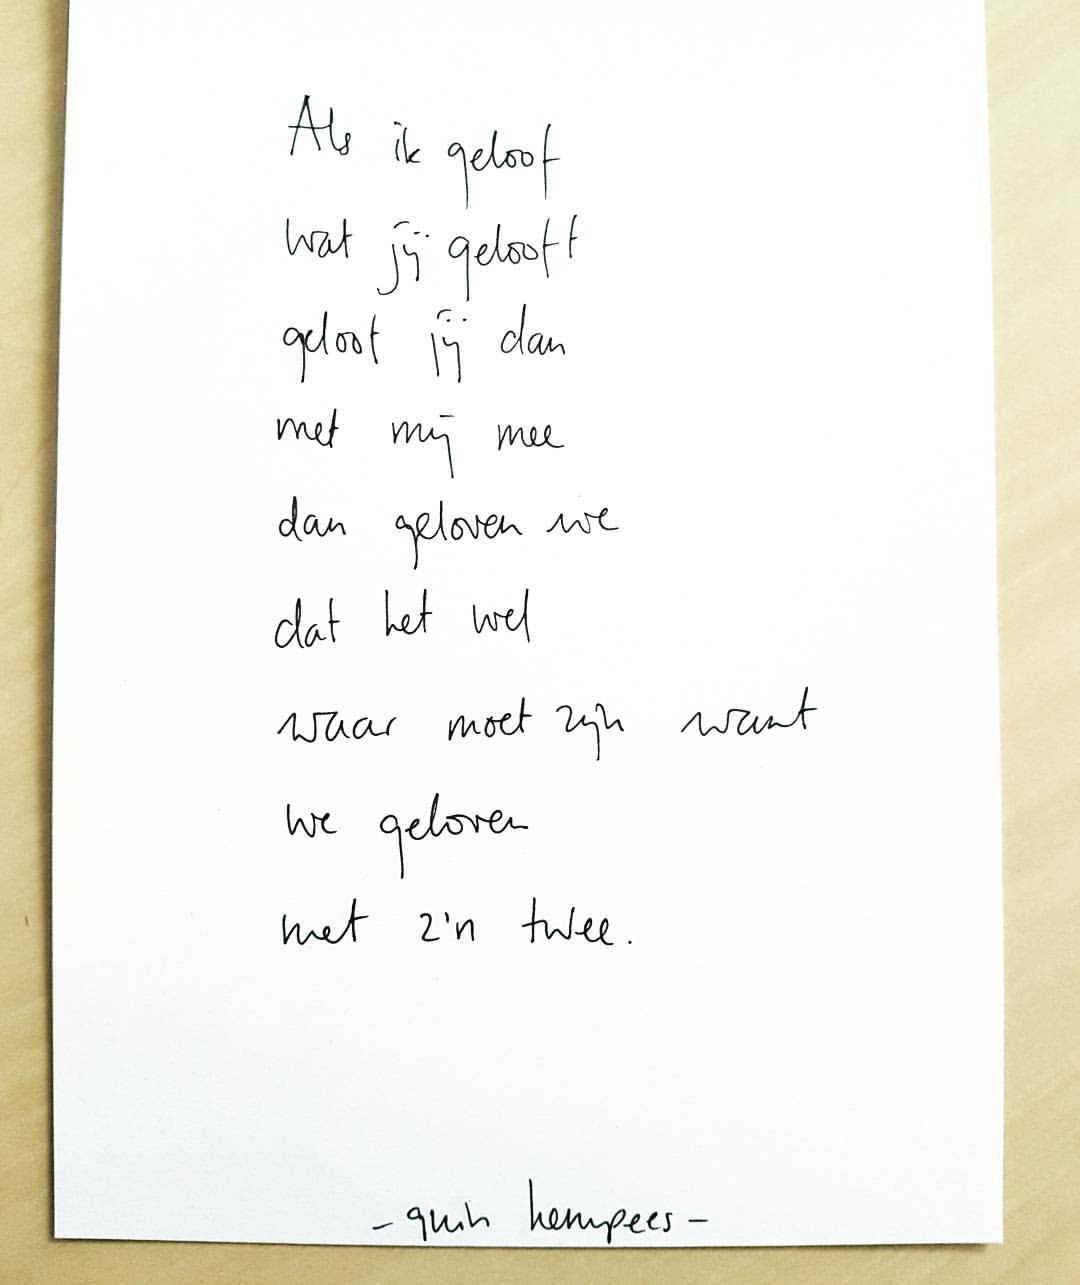 Als ik geloof
wat jij gelooft
geloof jij dan
met mij mee
dan geloven we
dat het wel
waar moet zijn want
we geloven
met z'n twee.
- quin hempees -